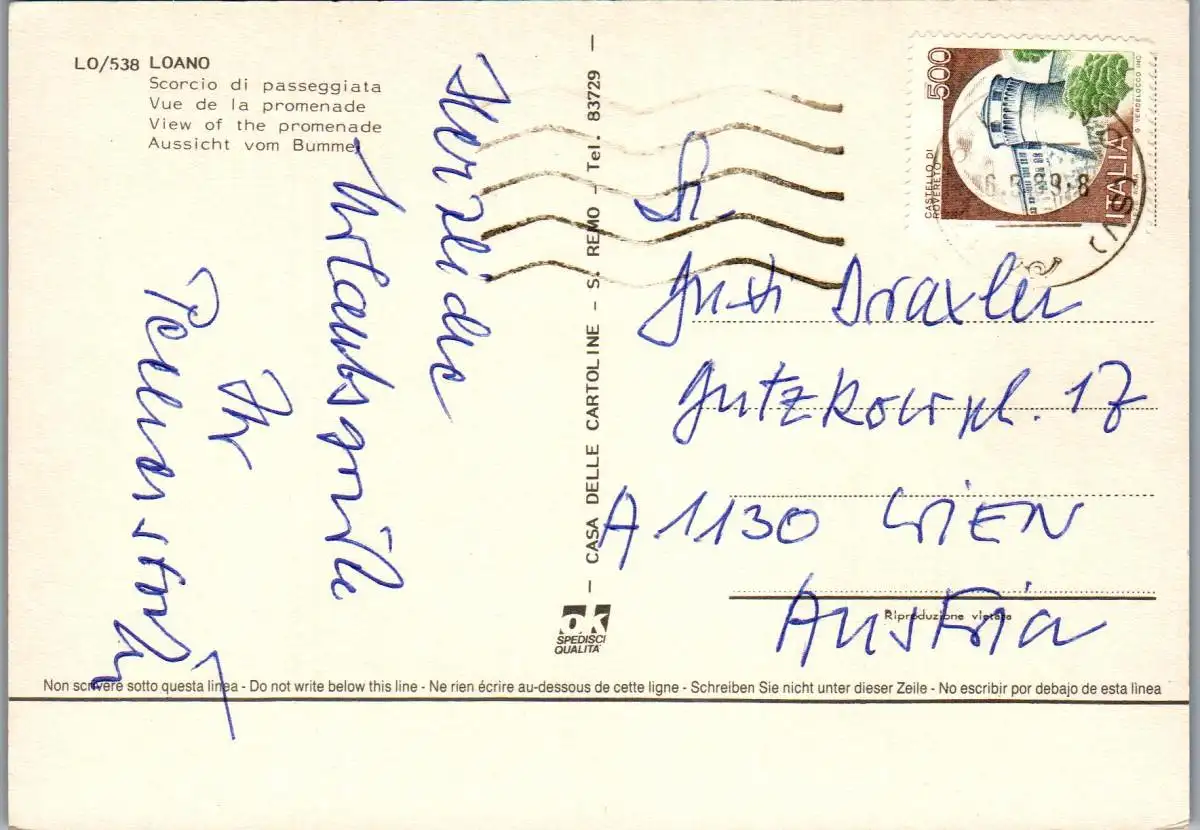 LO/538 LOANO
Scorcio di passeggiata
Vue de la promenade
View of the promenade
Aussicht vom Bummel
Herzliche
Urlaubsgrüße
Ihr
CASA DELLE CARTOLINE - S. REMO - Tel. 83729
ok
SPEDISCI
QUALITA'
500
CASTELLO DI
ROVERETO
ITALIA
G. VERDELOCCO INC.
(SV)
Gusti Draxler
Gutzkowpl. 17
A 1130 WIEN
AUSTRIA
Riproduzione vietata
Non scrivere sotto questa linea - Do not write below this line - Ne rien écrire au-dessous de cette ligne - Schreiben Sie nicht unter dieser Zeile - No escribir por debajo de esta linea